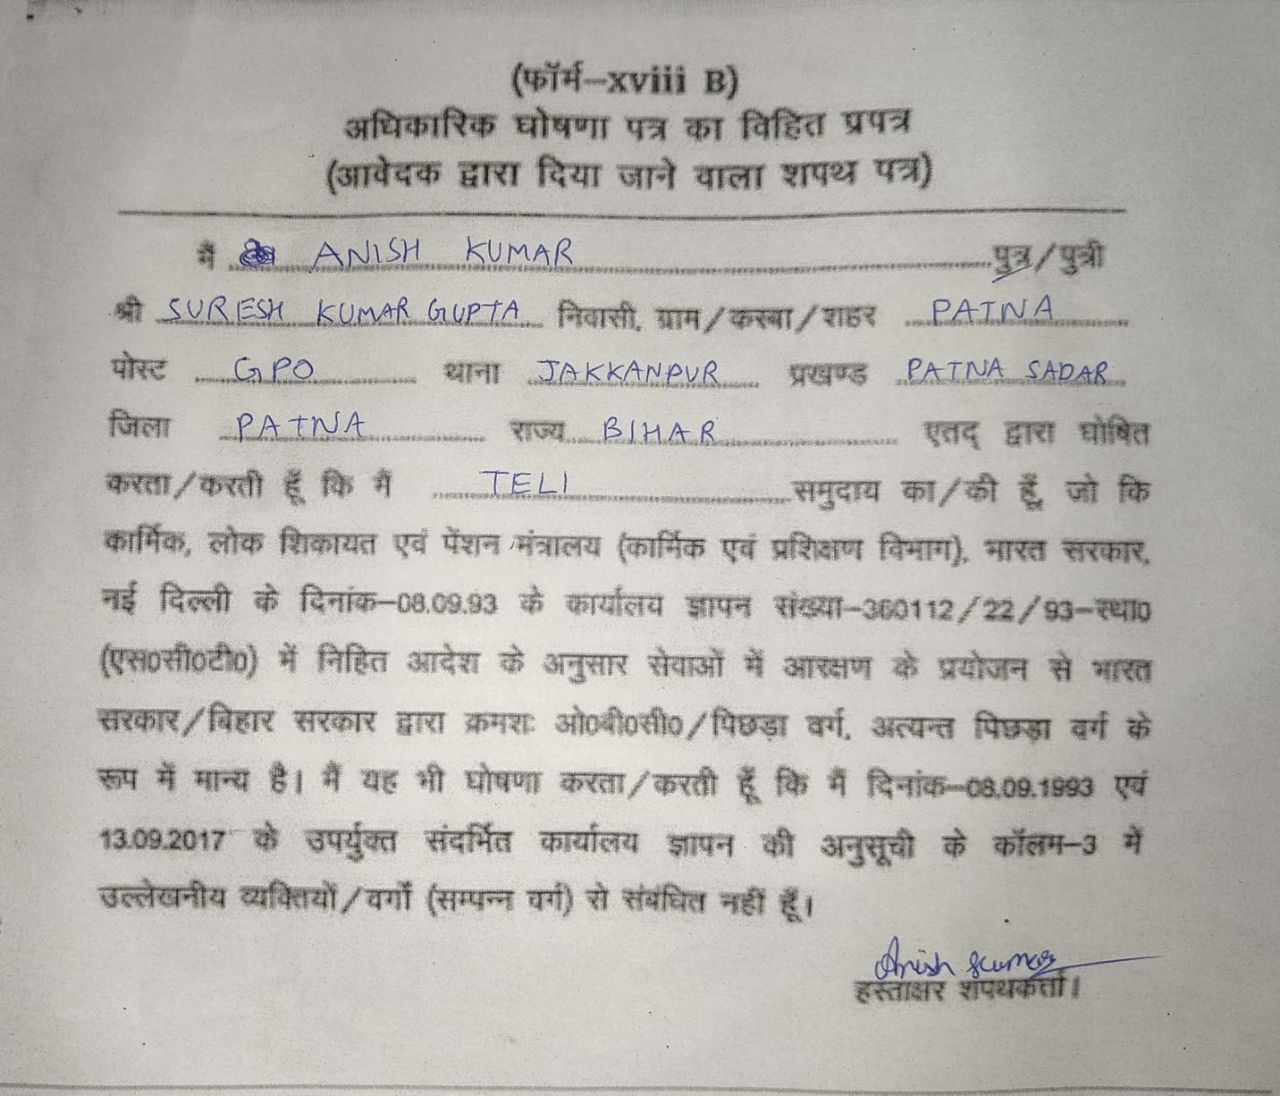 (फॉर्म–xviii B)
अधिकारिक घोषणा पत्र का विहित प्रपत्र
(आवेदक द्वारा दिया जाने वाला शपथ पत्र)
मैं ANISH KUMAR पुत्र/पुत्री
श्री SURESH KUMAR GUPTA निवासी, ग्राम/कस्बा/शहर PATNA
पोस्ट GPO थाना JAKKANPUR प्रखण्ड PATNA SADAR
जिला PATNA राज्य BIHAR एतद् द्वारा घोषित
करता/करती हूँ कि मैं TELI समुदाय का/की हूँ, जो कि
कार्मिक, लोक शिकायत एवं पेंशन मंत्रालय (कार्मिक एवं प्रशिक्षण विभाग), भारत सरकार,
नई दिल्ली के दिनांक–08.09.93 के कार्यालय ज्ञापन संख्या–360112/22/93–स्था0
(एस0सी0टी0) में निहित आदेश के अनुसार सेवाओं में आरक्षण के प्रयोजन से भारत
सरकार/बिहार सरकार द्वारा क्रमशः ओ0बी0सी0/पिछड़ा वर्ग, अत्यन्त पिछड़ा वर्ग के
रूप में मान्य है। मैं यह भी घोषणा करता/करती हूँ कि मैं दिनांक–08.09.1993 एवं
13.09.2017 के उपर्युक्त संदर्भित कार्यालय ज्ञापन की अनुसूची के कॉलम–3 में
उल्लेखनीय व्यक्तियों/वर्गों (सम्पन्न वर्ग) से संबंधित नहीं हूँ।
Anish Kumar
हस्ताक्षर शपथकर्ता।